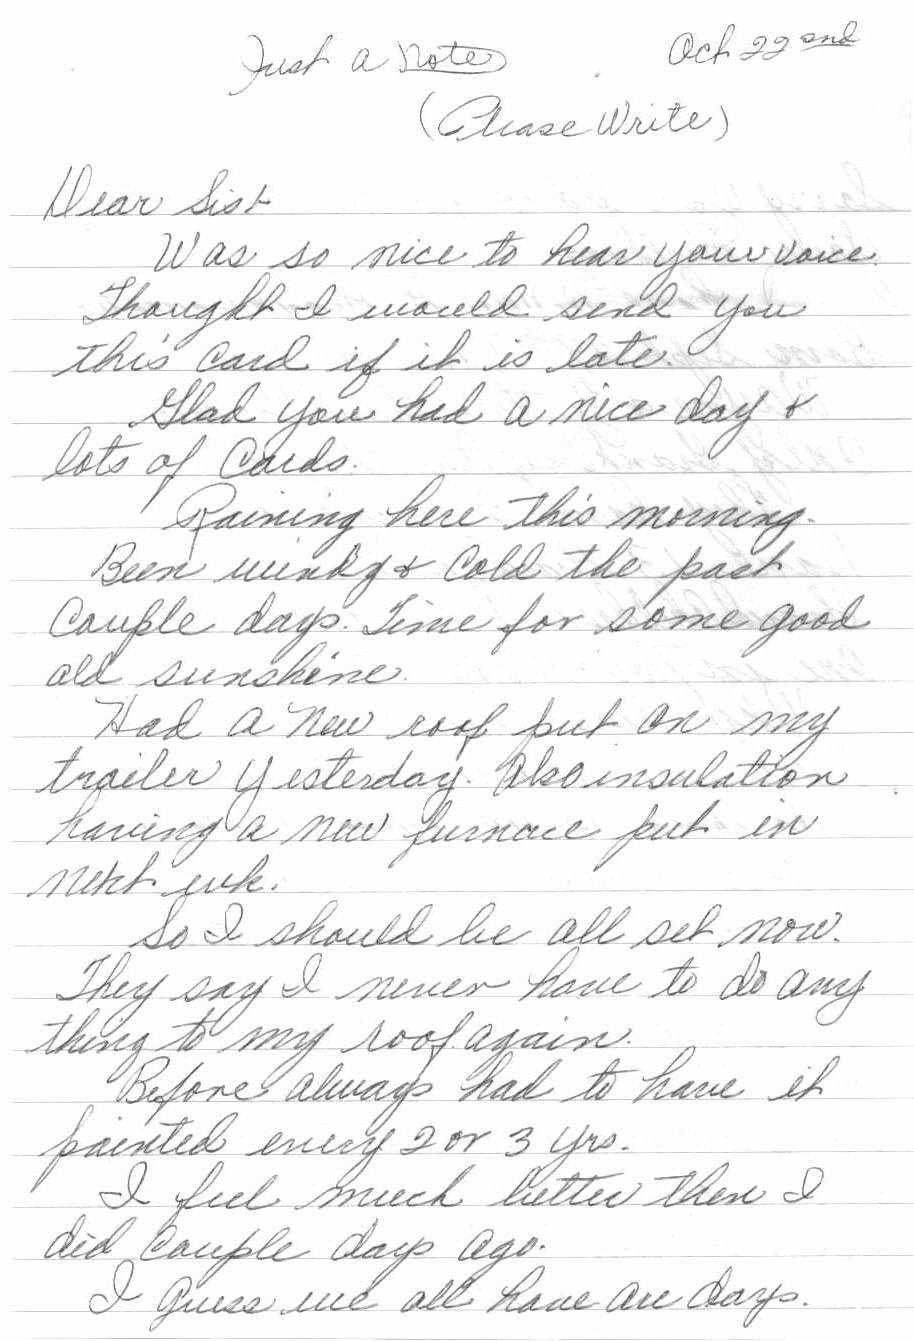 Just a Note Oct 22nd
(Please Write)
Dear Sist
Was so nice to hear your voice.
Thought I would send you
this card if it is late.
Glad you had a nice day &
lots of Cards.
Raining here this morning.
Been windy & Cold the past
Couple days. Time for some good
old sunshine.
Had a New roof put on my
trailer yesterday. Also insulation
having a new furnace put in
next wk.
So I should be all set now.
They say I never have to do any
thing to my roof again.
Before always had to have it
painted every 2 or 3 yrs.
I feel much better then I
did Couple days ago.
I guess we all have are days.